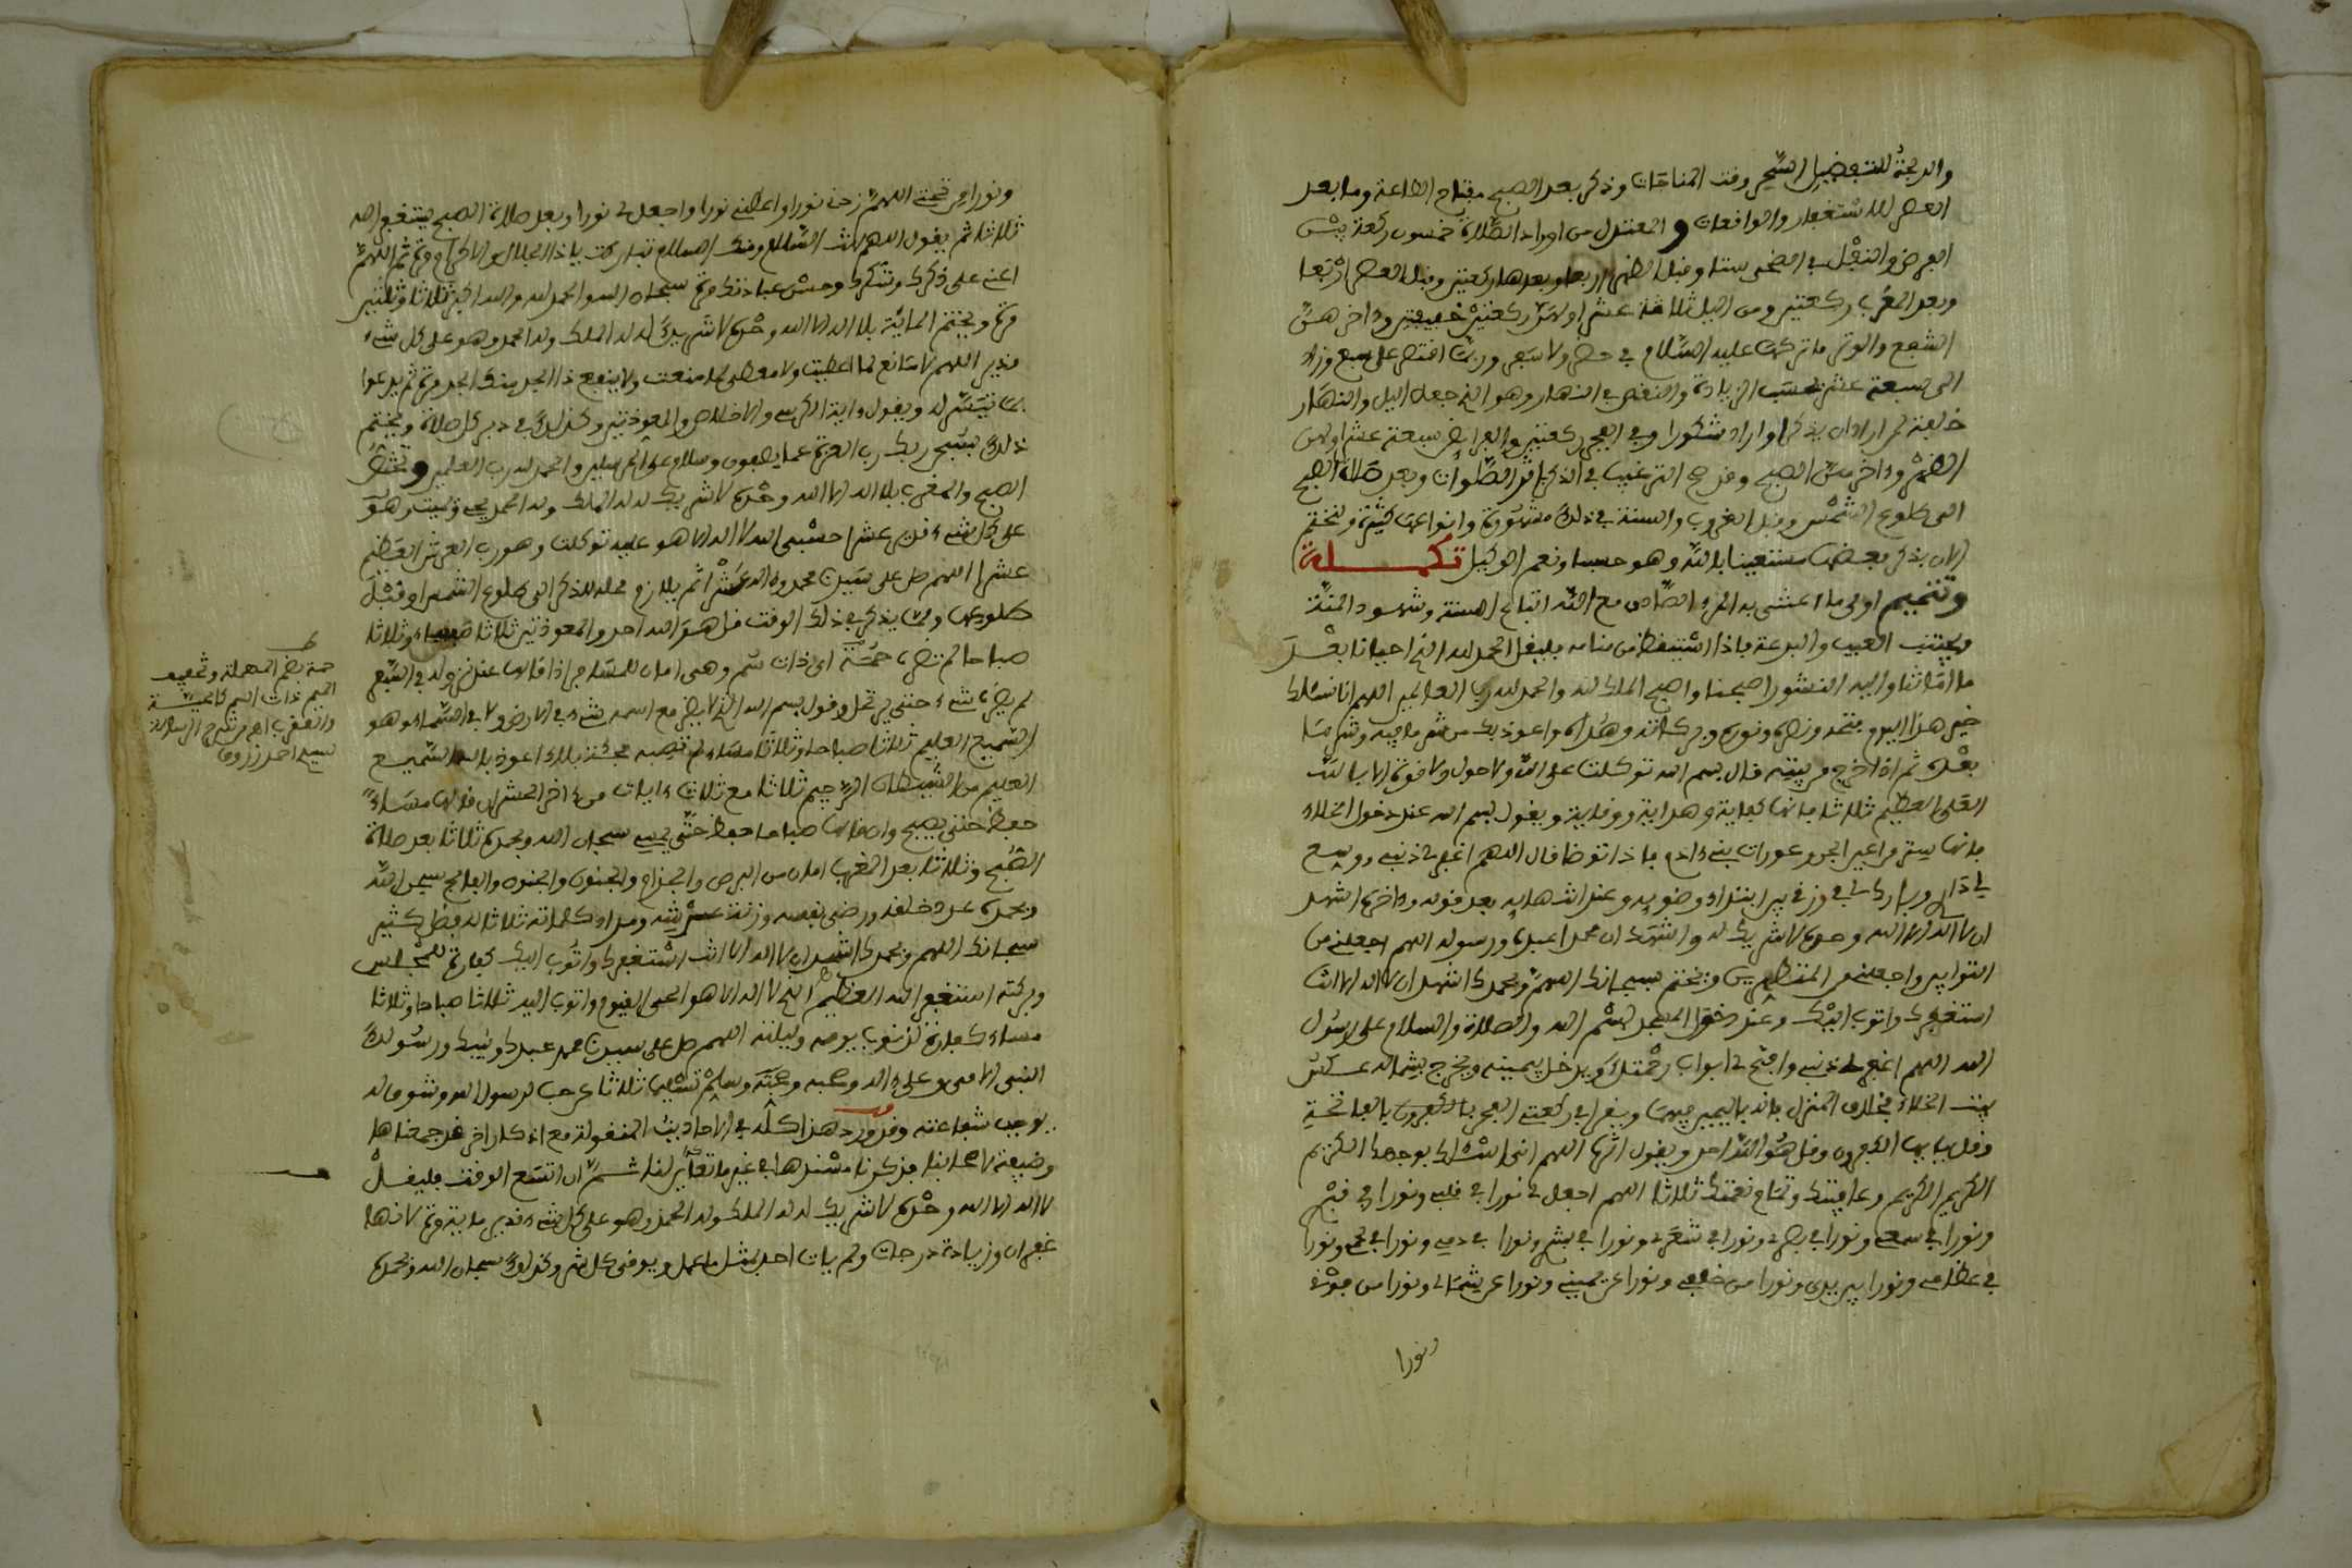 والدلجة للتفضيل السحر وقت المناجات وذكر بعد الصبح مفتاح الطاعة وما بعد
العصر للاستغفار والواقعات و المعتدل من اوراد الصلاة خمسون ركعة
الفرض والنفل في الضحى ستا وقبل الظهر اربعا وبعدها ركعتين وقبل العصر اربعا
وبعد المغرب ركعتين ومن اليل ثلاثة عشر اولهن ركعتين خفيفتين واخرهن
الشفع والوتر ما تركهن عليه السلام في حضر ولا سفر وربما اقتصر على سبع وزاد
الى سبعة عشر بحسب الزيادة والنقص في النهار وهو الذي جعل اليل والنهار
خلفة لمن اراد ان يذكر او اراد شكورا وفي الفجر ركعتين والفرايض سبعة عشر اولهن
الظهر واخرهن الصبح وقد صح الترغيب في الذكر اثر الصلوات وبعد صلاة الصبح
الى طلوع الشمس وقبل الغروب والسنة في ذلك مشهورة وانواعها كثيرة ولنختم
الان بذكر بعضها مستعينا بالله وهو حسبنا ونعم الوكيل تكملة
وتتميم اولى ما اعتنى به المريد الصادق مع الله اتباع السنة وشهود المنة
ويجتنب العيب والبدعة فاذا استيقظ من منامه فليقل الحمد لله الذي احيانا بعد
ما اماتنا واليه النشور اصبحنا واصبح الملك لله والحمد لله رب العالمين اللهم انا نسئلك
خير هذا اليوم فتحه ونصره ونوره وبركاته وهداه واعوذ بك من شر ما فيه وشر ما
بعده ثم اذا خرج من بيته قال بسم الله توكلت على الله ولا حول ولا قوة الا بالله
العلي العظيم ثلاثا فانها كفاية وهداية ووقاية ويقول بسم الله عند دخول الخلاء
فانها ستر من اعين الجن وعورات بني ءادم فاذا توضا قال اللهم اغفر لي ذنبي ووسع
لي داري وبارك لي في رزقي في ابتداء وضوءه وعند انتهايه بعد قوله وءاخره اشهد
ان لا اله الا الله وحده لا شريك له واشهد ان محمدا عبده ورسوله اللهم اجعلني من
التوابين واجعلني من المتطهرين ويختم بسبحانك اللهم وبحمدك اشهد ان لا اله الا انت
استغفرك واتوب اليك وعند دخول المسجد بسم الله والصلاة والسلام على رسول
الله اللهم اغفر لي ذنبي وافتح لي ابواب رحمتك ويدخل بيمينه ويخرج بشماله عكس
بيت الخلاء بخلاف المنزل فانه باليمين فيهما ويقرا في ركعتي الفجر بالفاتحة
وقل يايها الكفرون وقل هو الله احد ويقول اثرها اللهم اني اسئلك بوجهك الكريم
الكريم الكريم وعافيتك وتمام نعمتك ثلاثا اللهم اجعل لي نورا في قلبي ونورا في قبري
ونورا في سمعي ونورا في بصري ونورا في شعري ونورا في بشري ونورا في دمي ونورا في لحمي ونورا
في عظامي ونورا بين يدي ونورا من خلفي ونورا عن يميني ونورا عن شمالي ونورا من فوقي
ونورا
ونورا من تحتي اللهم زدني نورا واعطني نورا واجعل لي نورا وبعد صلاة الصبح يستغفر الله
ثلاثا ثم يقول اللهم انت السلام ومنك السلام تباركت ياذا الجلال والاكرام مرة ثم اللهم
اعني على ذكرك وشكرك وحسن عبادتك مرة سبحان الله والحمد لله والله اكبر ثلاثا وثلثين
مرة ويختم المائة بلا اله الا الله وحده لا شريك له له الملك وله الحمد وهو على كل شيء
قدير اللهم لا مانع لما اعطيت ولا معطي لما منعت ولا ينفع ذا الجد منك الجد مرة ثم يدعوا
بما تيسر له ويقول ءاية الكرسي والاخلاص والمعوذتين وكذلك في دبر كل صلاة ويختم
ذلك بسبحن ربك رب العزة عما يصفون وسلام على المرسلين والحمد لله رب العلمين ويختص
الصبح والمغرب بلا اله الا الله وحده لا شريك له له الملك وله الحمد يحيي ويميت وهو
على كل شيء قدير عشرا حسبي الله لا اله الا هو عليه توكلت وهو رب العرش العظيم
عشرا اللهم صل على سيدنا محمد وءاله عشرا ثم يلازم محله للذكر الى طلوع الشمس او قبل
طلوعها ومما يذكر في ذلك الوقت قل هو الله احد والمعوذتين ثلاثا مساء وثلاثا
صباحا لم تضره حمة اي ذات سم وهي امان للمسافر اذا قالها عند نزوله في السفر
لم يضره شيء حتى يرتحل وقول بسم الله الذي لا يضر مع اسمه شيء في الارض ولا في السماء وهو
السميع العليم ثلاثا صباحا وثلاثا مساء لم تصبه فجئة بلاء اعوذ بالله السميع
العليم من الشيطان الرجيم ثلاثا مع ثلاث ءايات من ءاخر الحشر ان قالها مساء
حفظ حتى يصبح وان قالها صباحا حفظ حتى يمسي سبحان الله وبحمده ثلاثا بعد صلاة
الصبح وثلاثا بعد المغرب امان من البرص والجذام والجنون والفالج سبحن الله
وبحمده عدد خلقه ورضى نفسه وزنة عرشه ومداد كلماته ثلاثا له فضل كثير
سبحانك اللهم وبحمدك اشهد ان لا اله الا انت استغفرك واتوب اليك كفارة للمجلس
وبركته استغفر الله العظيم الذي لا اله الا هو الحي القيوم واتوب اليه ثلاثا صباحا وثلاثا
مساء كفارة لذنوب يومه وليلته اللهم صل على سيدنا محمد عبدك ونبيك ورسولك
النبي الامي وعلى ءاله وصحبه وسلم تسليما ثلاثا عن حب لرسول الله وشوق له
يوجب شفاعته وقد ورد هذا كله في الاحاديث المنقولة مع اذكار اخر قد جمعناها
وظيفة لاصحابنا فذكرنا مسندها في غير ما تقاييد لنا ثم ان اتسع الوقت فليقل
لا اله الا الله وحده لا شريك له له الملك وله الحمد وهو على كل شيء قدير مائة مرة لانها
غفران وزيادة درجات ولم يات احد بمثل ما عمل ويوقى كل شر وكذلك سبحان الله وبحمده
حمة بضم المهملة وتخفيف
الميم ذات السم كالحية
والعقرب اهـ من شرح الرسالة
لسيدي احمد زروق